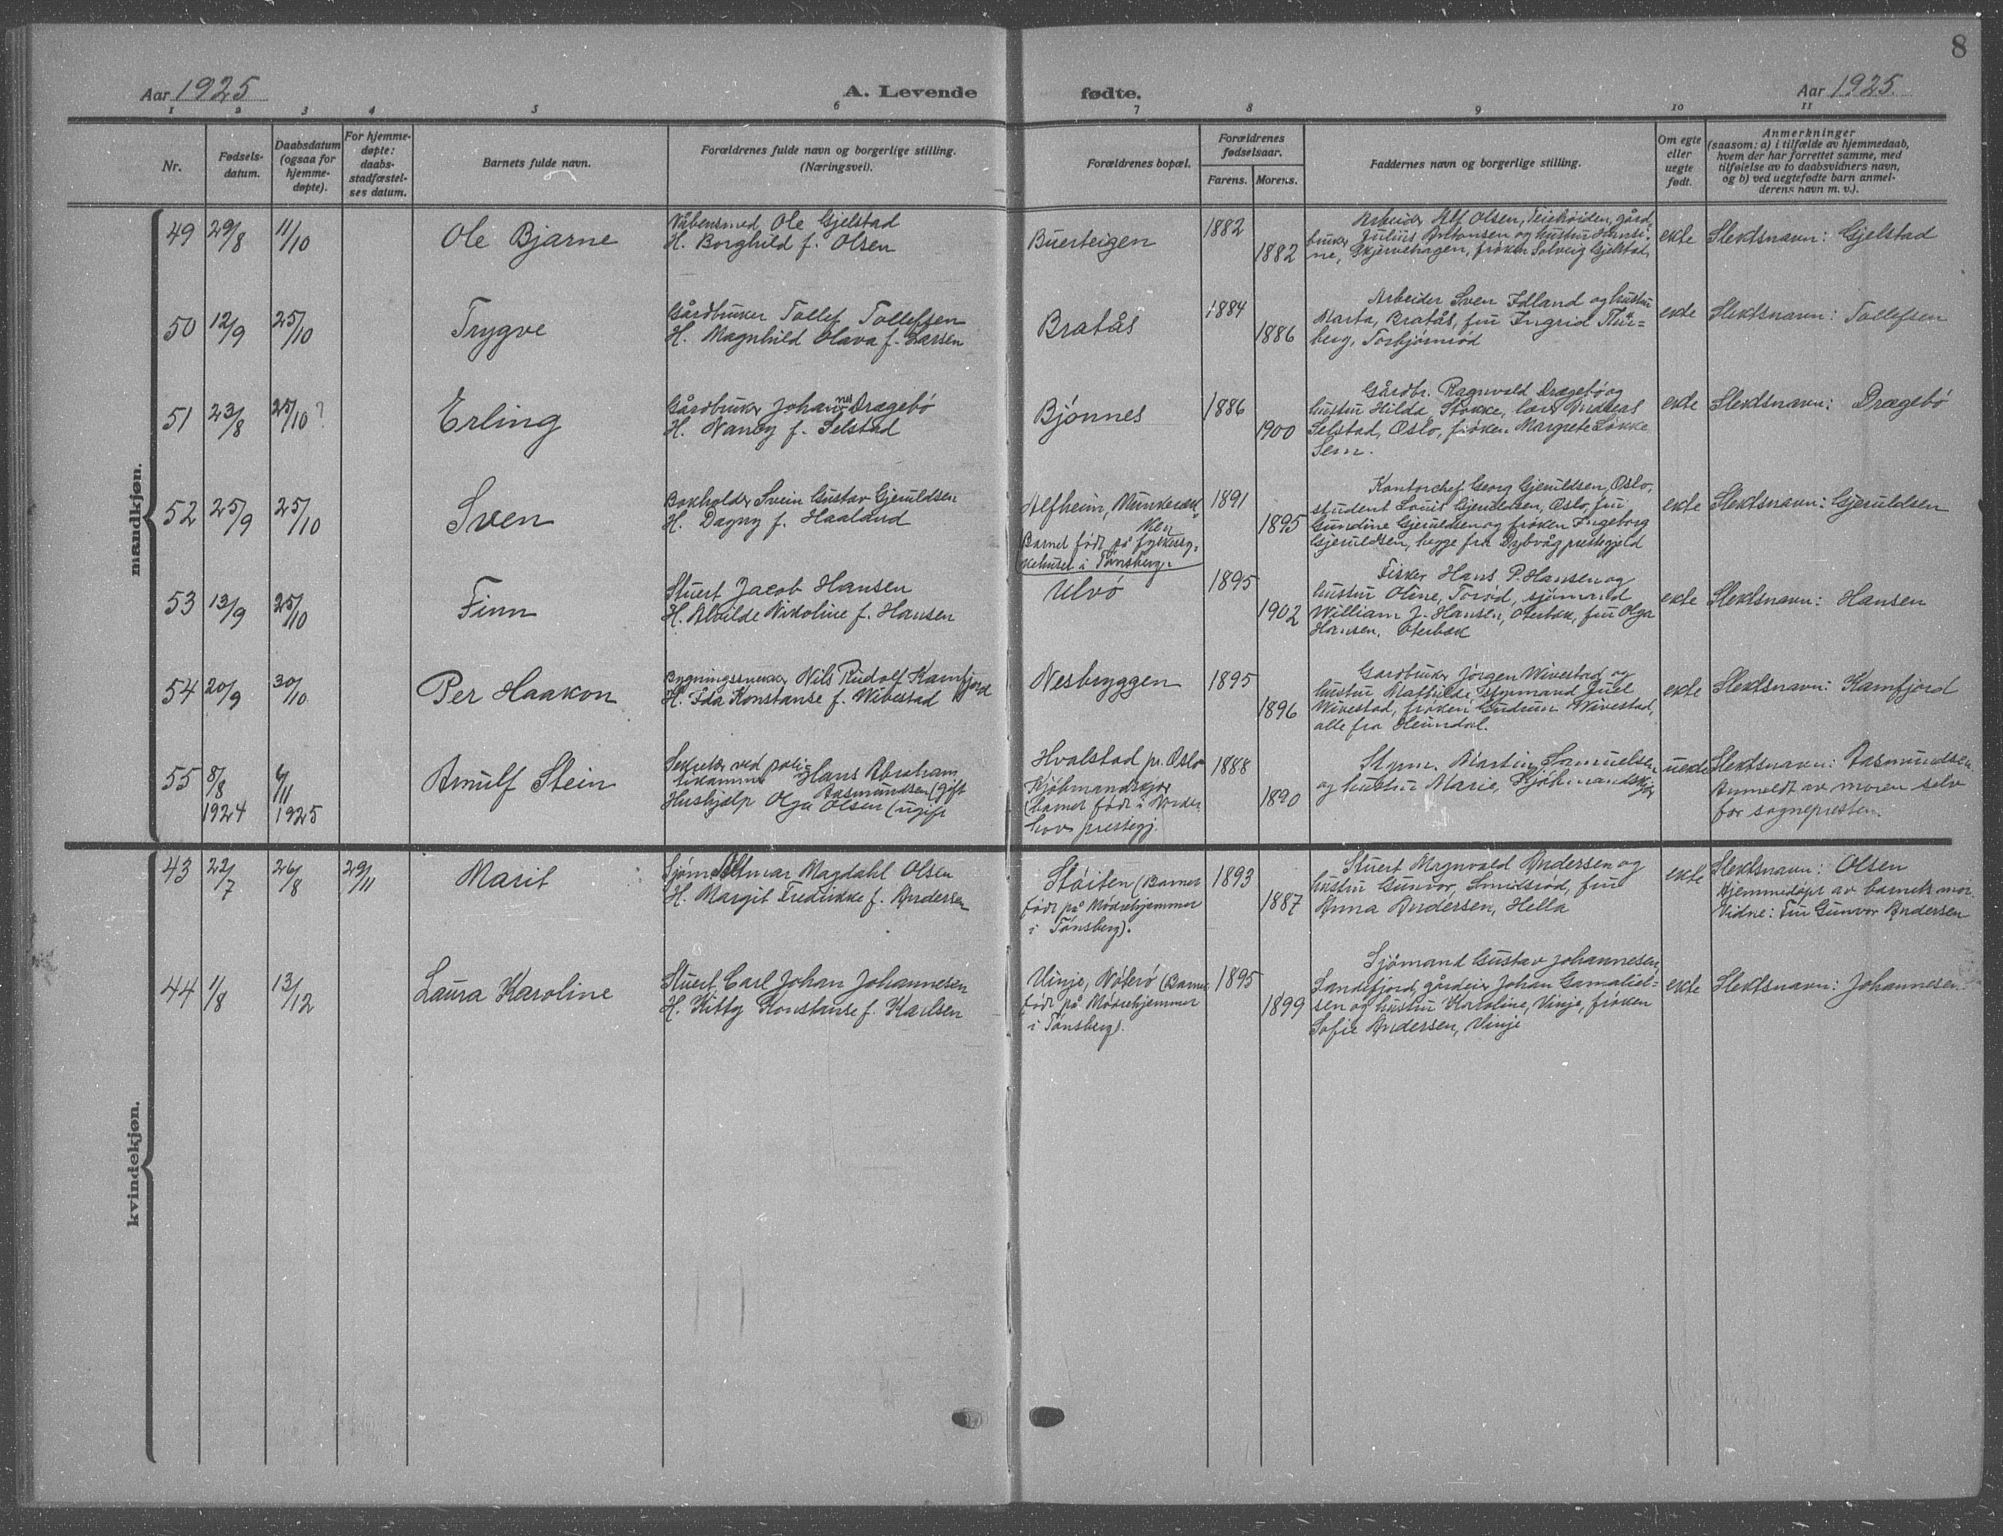 8
Aar 1925
A. Levende fødte.
Aar 1925
1 2 3 4 5 6 7 8 9 10 11
Nr.
Fødsels-
datum.
Daabsdatum
(ogsaa for
hjemme-
døpte).
For hjemme-
døpte:
daabs-
stadfæstel-
ses datum.
Barnets fulde navn.
Forældrenes fulde navn og borgerlige stilling.
(Næringsvei).
Forældrenes bopæl.
Forældrenes
fødselsaar.
Farens. Morens.
Faddernes navn og borgerlige stilling.
Om egte
eller
uegte
født.
Anmerkninger
(saasom: a) i tilfælde av hjemmedaab,
hvem der har forrettet samme, med
tilføielse av to daabsvidners navn,
og b) ved uegtefødte barn anmel-
derens navn m. v.).
mandkjøn.
49 29/8 11/10 Ole Bjarne
Våbensmed Ole Gjelstad
H. Borghild f. Olsen
Buerteigen
1882
1882
Arbeider Alf Olsen, Teiehöiden, gård
bruker Julius Antonsen og hustru Hansi-
ne, Skjervehagen, frøken Solveig Gjelstad,
ekte
Slektsnavn: Gjelstad
50 12/9 25/10 Trygve
Gårdbruker Tollef Tollefsen
H. Magnhild Olava f. Larsen
Bratås
1884
1886
Arbeider Sven Idland og hustru
Marta, Bratås, fru Ingrid Thu-
berg, Torbjørnrød
ekte
Slektsnavn: Tollefsen
51 23/8 25/10 ? Erling
Gårdbruker Johannes Drægebø
H. Nancy f. Selstad
Bjønnes
1886
1900
Gårdbr. Ragnvald Drægebø og
hustru Hilda, Stokke, lærer Anders
Selstad, Oslo, frøken Margrete Løkke
Sem.
ekte
Slektsnavn: Drægebø
52 25/9 25/10 Sven
Bokholder Svein Gustav Gjeruldsen
H. Dagny f. Haaland
Alfheim, Munkerek-
ken
Barnet født på fylkessy-
kehuset i Tønsberg.
1891
1895
Kontorchef Georg Gjeruldsen, Oslo,
student Louis Gjeruldsen, Oslo, fru
Gundine Gjeruldsen og frøken Ingeborg
Gjeruldsen, begge fra Dybvåg prestegjeld
ekte
Slektsnavn: Gjeruldsen
53 13/9 25/10 Finn
Stuert Jacob Hansen
H. Alvilde Nikoline f. Hansen
Ulvø
1895
1902
Fisker Hans P. Hansen og
hustru Oline, Torød, sjømand
William J. Hansen, Oterbæk, fru Olga
Hansen, Oterbæk
ekte
Slektsnavn: Hansen
54 20/9 30/10 Per Haakon
Bygningssnekker Nils Rudolf Kamfjord
H. Ida Konstanse f. Wivestad
Nesbryggen
1895
1896
Gårdbruker Jørgen Wivestad og
hustru Mathilde, styrmand Juel
Wivestad, frøken Gudrun Wivestad,
alle fra Heimdal.
ekte
Slektsnavn: Kamfjord
55 8/8 1924 6/11 1925 Arnulf Stein
Sekretær ved poli-
tikammer Hans Abraham
Rasmundsen (gift
Hushjælp Olga Olsen (ugift
Hvalstad pr. Oslo
Kjøbmandskjær
(barnet født i Norder
hov prestegj.
1888
1890
Styrm. Martin Samuelsen
og hustru Marie, Kjøbmandskjær
uekte
Slektsnavn: Rasmundsen
Anmeldt av moren selv
for sognepresten.
kvindekjøn.
43 22/7 26/8 29/11 Marit
Sjøm. Magdahl Olsen
H. Margit Fredrikke f. Andersen
Støiten (Barnet
født på Mødrehjemmet
i Tønsberg).
1893
1887
Stuert Magnvald Andersen og
hustru Gunvor, Smidsrød, fru
Anna Andersen, Hella
ekte
Slektsnavn: Olsen
Hjemmedøpt av barnets mor
Vidne: Fru Gunvor Andersen
44 1/8 13/12 Laura Karoline
Stuert Carl Johan Johannesen
H. Kitty Konstanse f. Karlsen
Vinje, Nøterø (Barnet
født på Mødrehjemmet
i Tønsberg).
1895
1899
Sjømand Gustav Johannesen,
Sandefjord, gårdeier Johan Gamaliel-
sen og hustru Karoline, Vinje, frøken
Sofie Andersen, Vinje
ekte
Slektsnavn: Johannesen